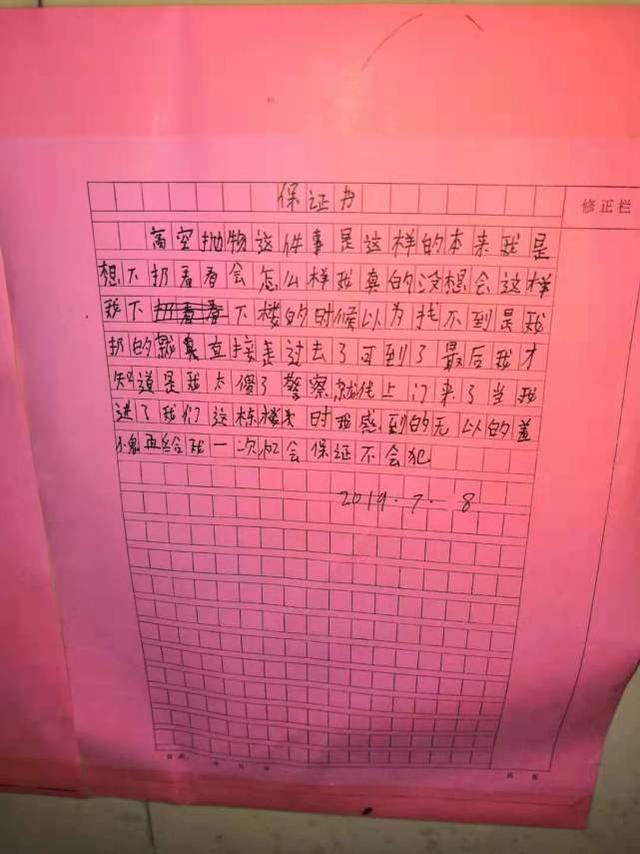 保证书
修正栏
高空抛物这件事是这样的本来我是
想下扔看看会怎么样我真的没想会这样
我下扔看看下楼的时候以为找不到是我
扔的就真直接走过去了可到了最后我才
知道是我太傻了警察就住上门来了当我
进了我们这栋楼时我感到的无以的羞
愧再给我一次机会保证不会犯
2019.7.8